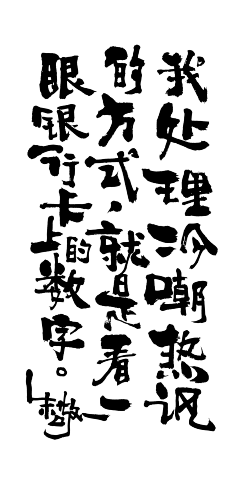 我处理冷嘲热讽
的方式，就是看一
眼银行卡上的数字。